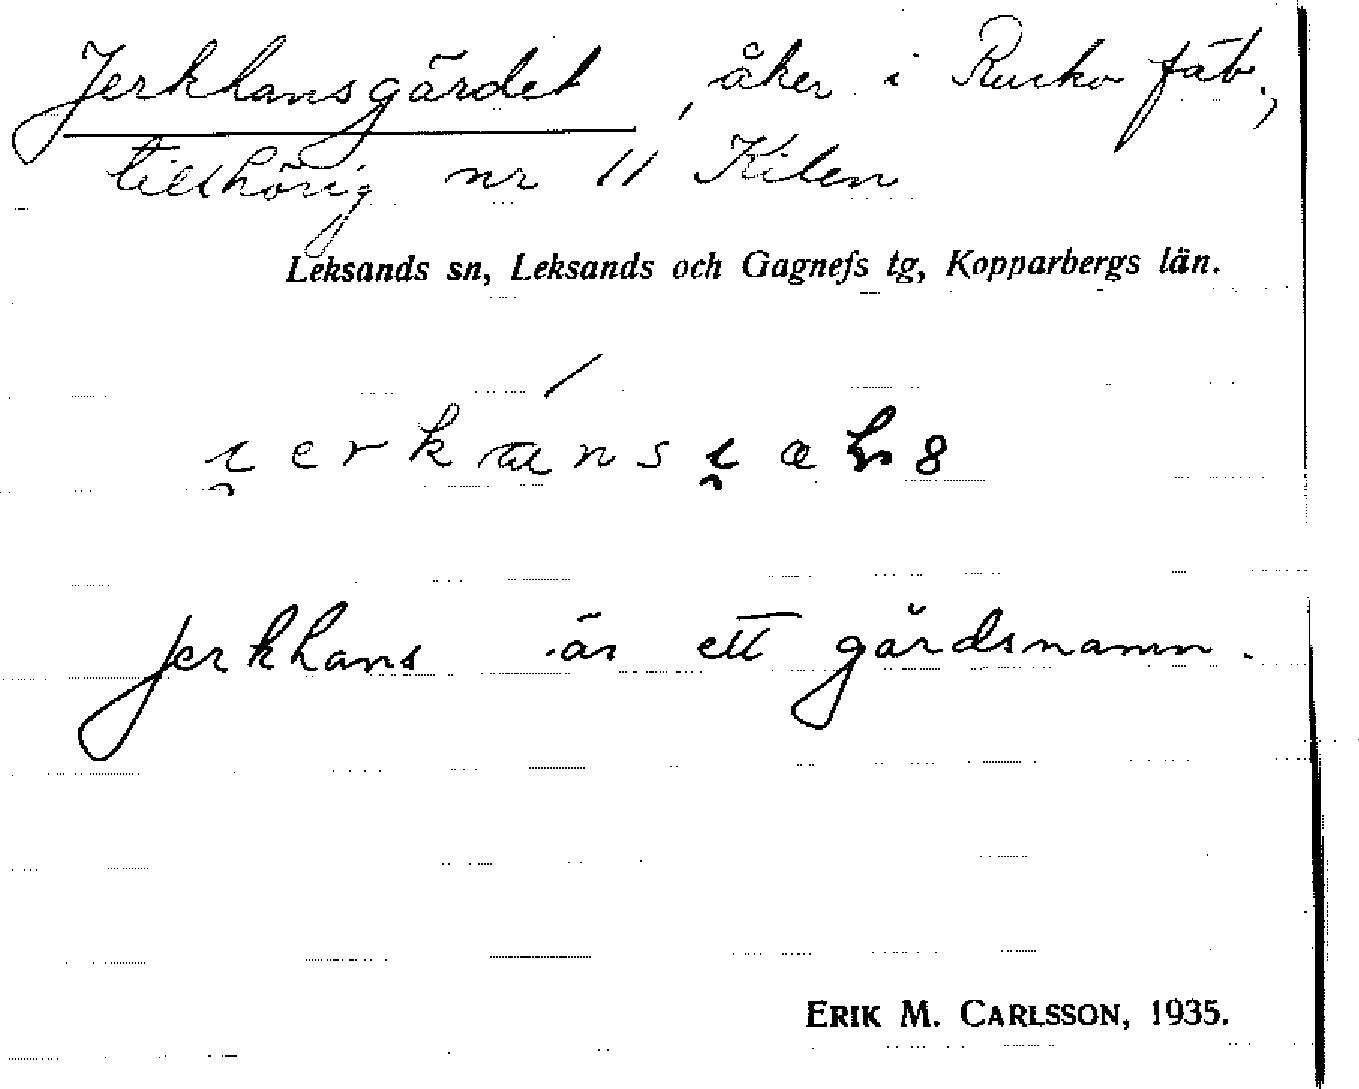 Jerkhansgärdet, åker i Rucko fäb.,
tillhörig nr 11 Kilen
Leksands sn, Leksands och Gagnefs tg, Kopparbergs län.
Jerkhans är ett gårdsnamn.
ERIK M. CARLSSON, 1935.